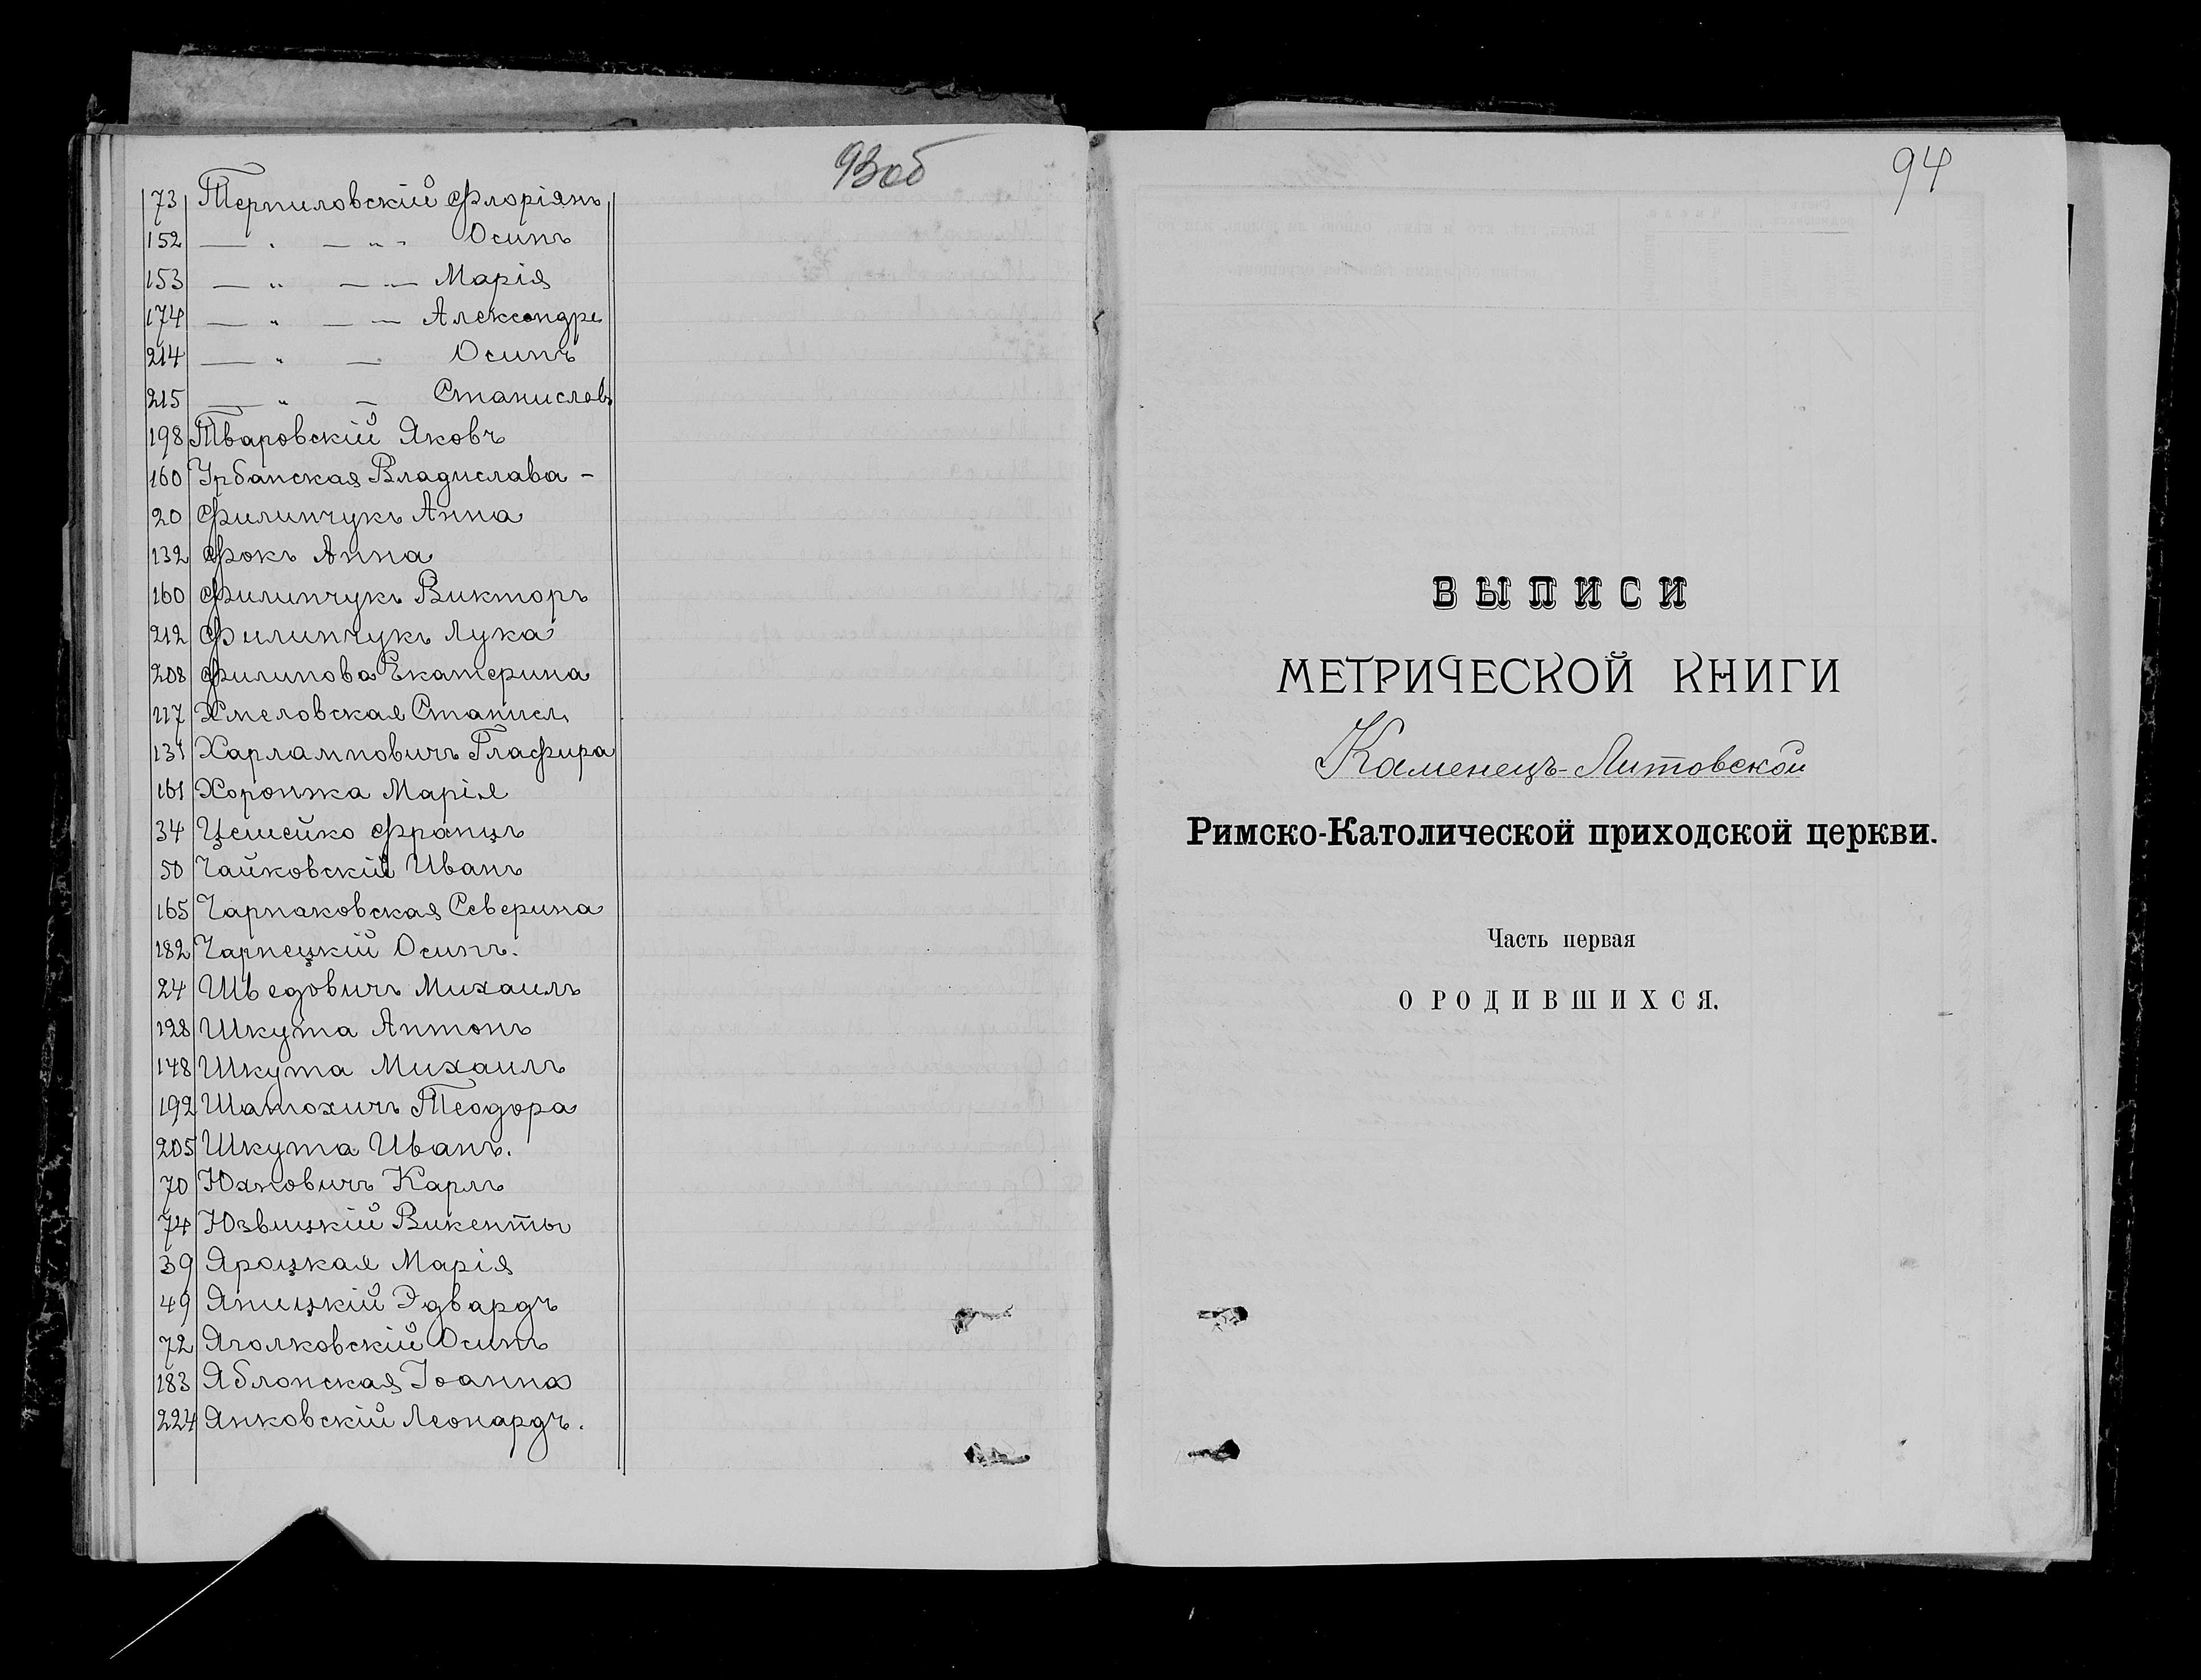 93об
73 Терпиловскій Флоріянъ
152 — „ — „ - Осипъ
153 — „ — „ — Марія
174 — „ — — Александръ
214 — „ — Осипъ
215 — „ — Станиславъ
198 Тваровскій Яковъ
160 Урбанская Владислава -
20 Филипчукъ Анна
132 Фокъ Анна
160 Филипчукъ Викторъ
212 Филипчукъ Лука
208 Филипова Екатерина
117 Хмеловская Станисл.
131 Харлампович Глафира
161 Хоронжа Марія
34 Цешейко Францъ
50 Чайковскій Иванъ
165 Чарнаковская Северина
182 Чарнецкій Осипъ.
24 Шведовичъ Михаилъ
128 Шкута Антонъ
148 Шкута Михаилъ
192 Шатохичъ Теодора
205 Шкута Иванъ.
70 Юхновичъ Карлъ
74 Юзвицкій Викенты
39 Яроцкая Марія
49 Яницкій Эдвардъ
72 Яголковскій Осипъ
183 Яблонская Іоанна
224 Янковскій Леонардъ.
94
ВЫПИСИ
МЕТРИЧЕСКОЙ КНИГИ
Каменецъ-Литовской
Римско-Католической приходской церкви.
Часть первая
О РОДИВШИХСЯ.